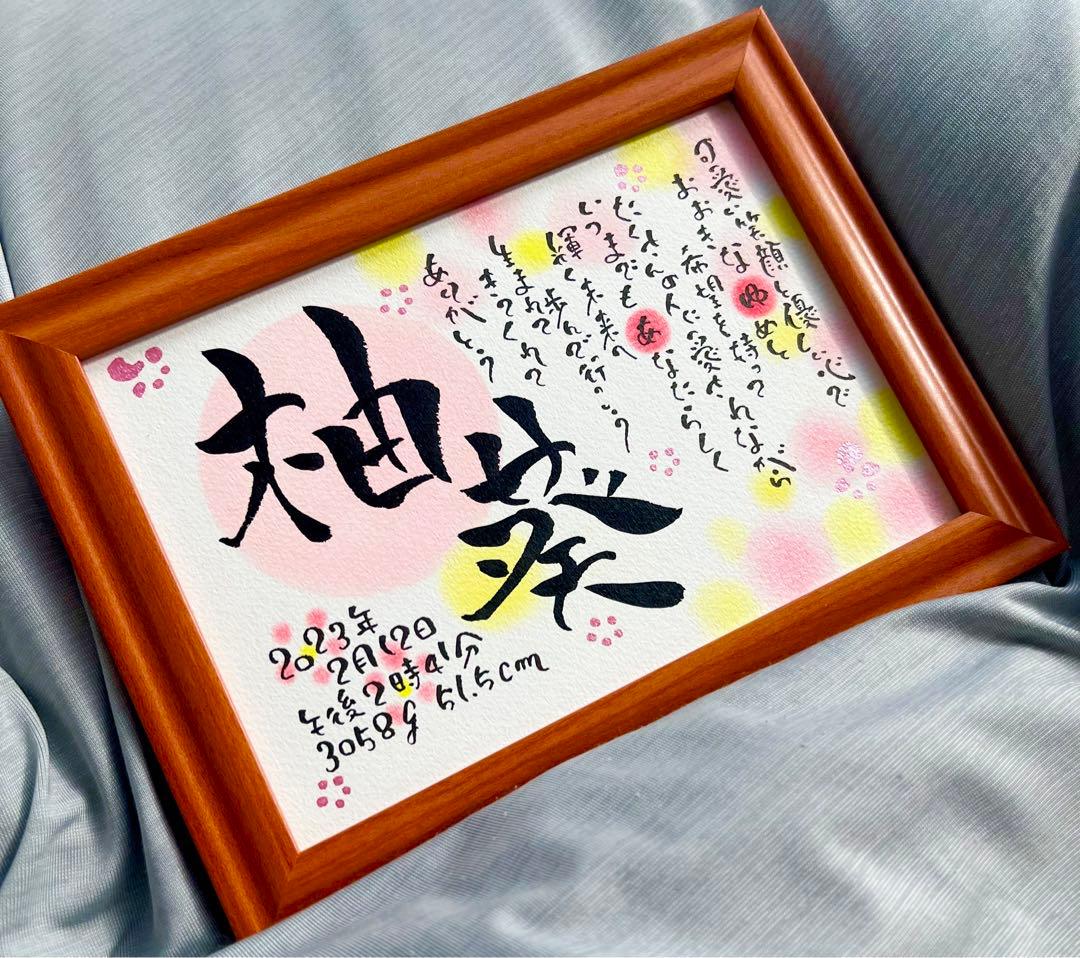 可愛い笑顔と優しい心で
おおきな ゆめと
希望を持って
たくさんの人に愛されながら
いつまでも あなたらしく
輝く未来へ
歩んで行こう
生まれて
きてくれて
ありがとう
柚葵
2023年
2月12日
午後2時41分
3058g 51.5cm